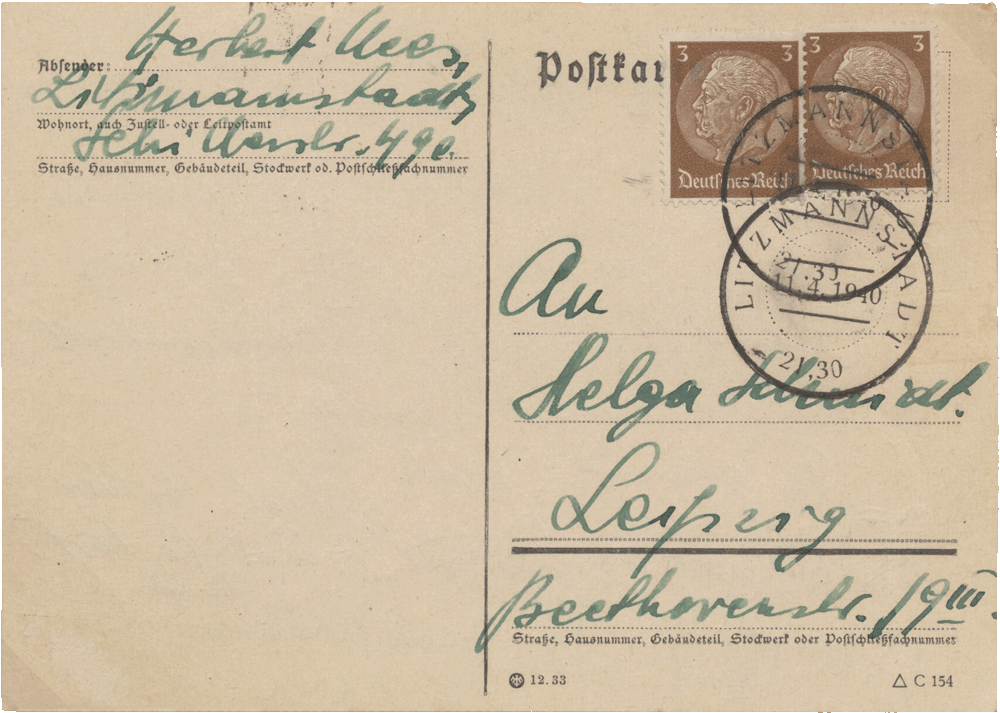 Absender: Herbert
Litzmannstadt,
Wohnort, auch Zustell- oder Leitpostamt
49c.
Straße, Hausnummer, Gebäudeteil, Stockwerk od. Postschließfachnummer
3 3
Deutsches Reich
3 3
Deutsches Reich
LITZMANNSTADT
LITZMANNSTADT
11.4.1940
21,30
An
Helga Schmidt.
Leipzig
Beethovenstr. 19 III.
Straße, Hausnummer, Gebäudeteil, Stockwerk oder Postschließfachnummer
12.33
△ C 154